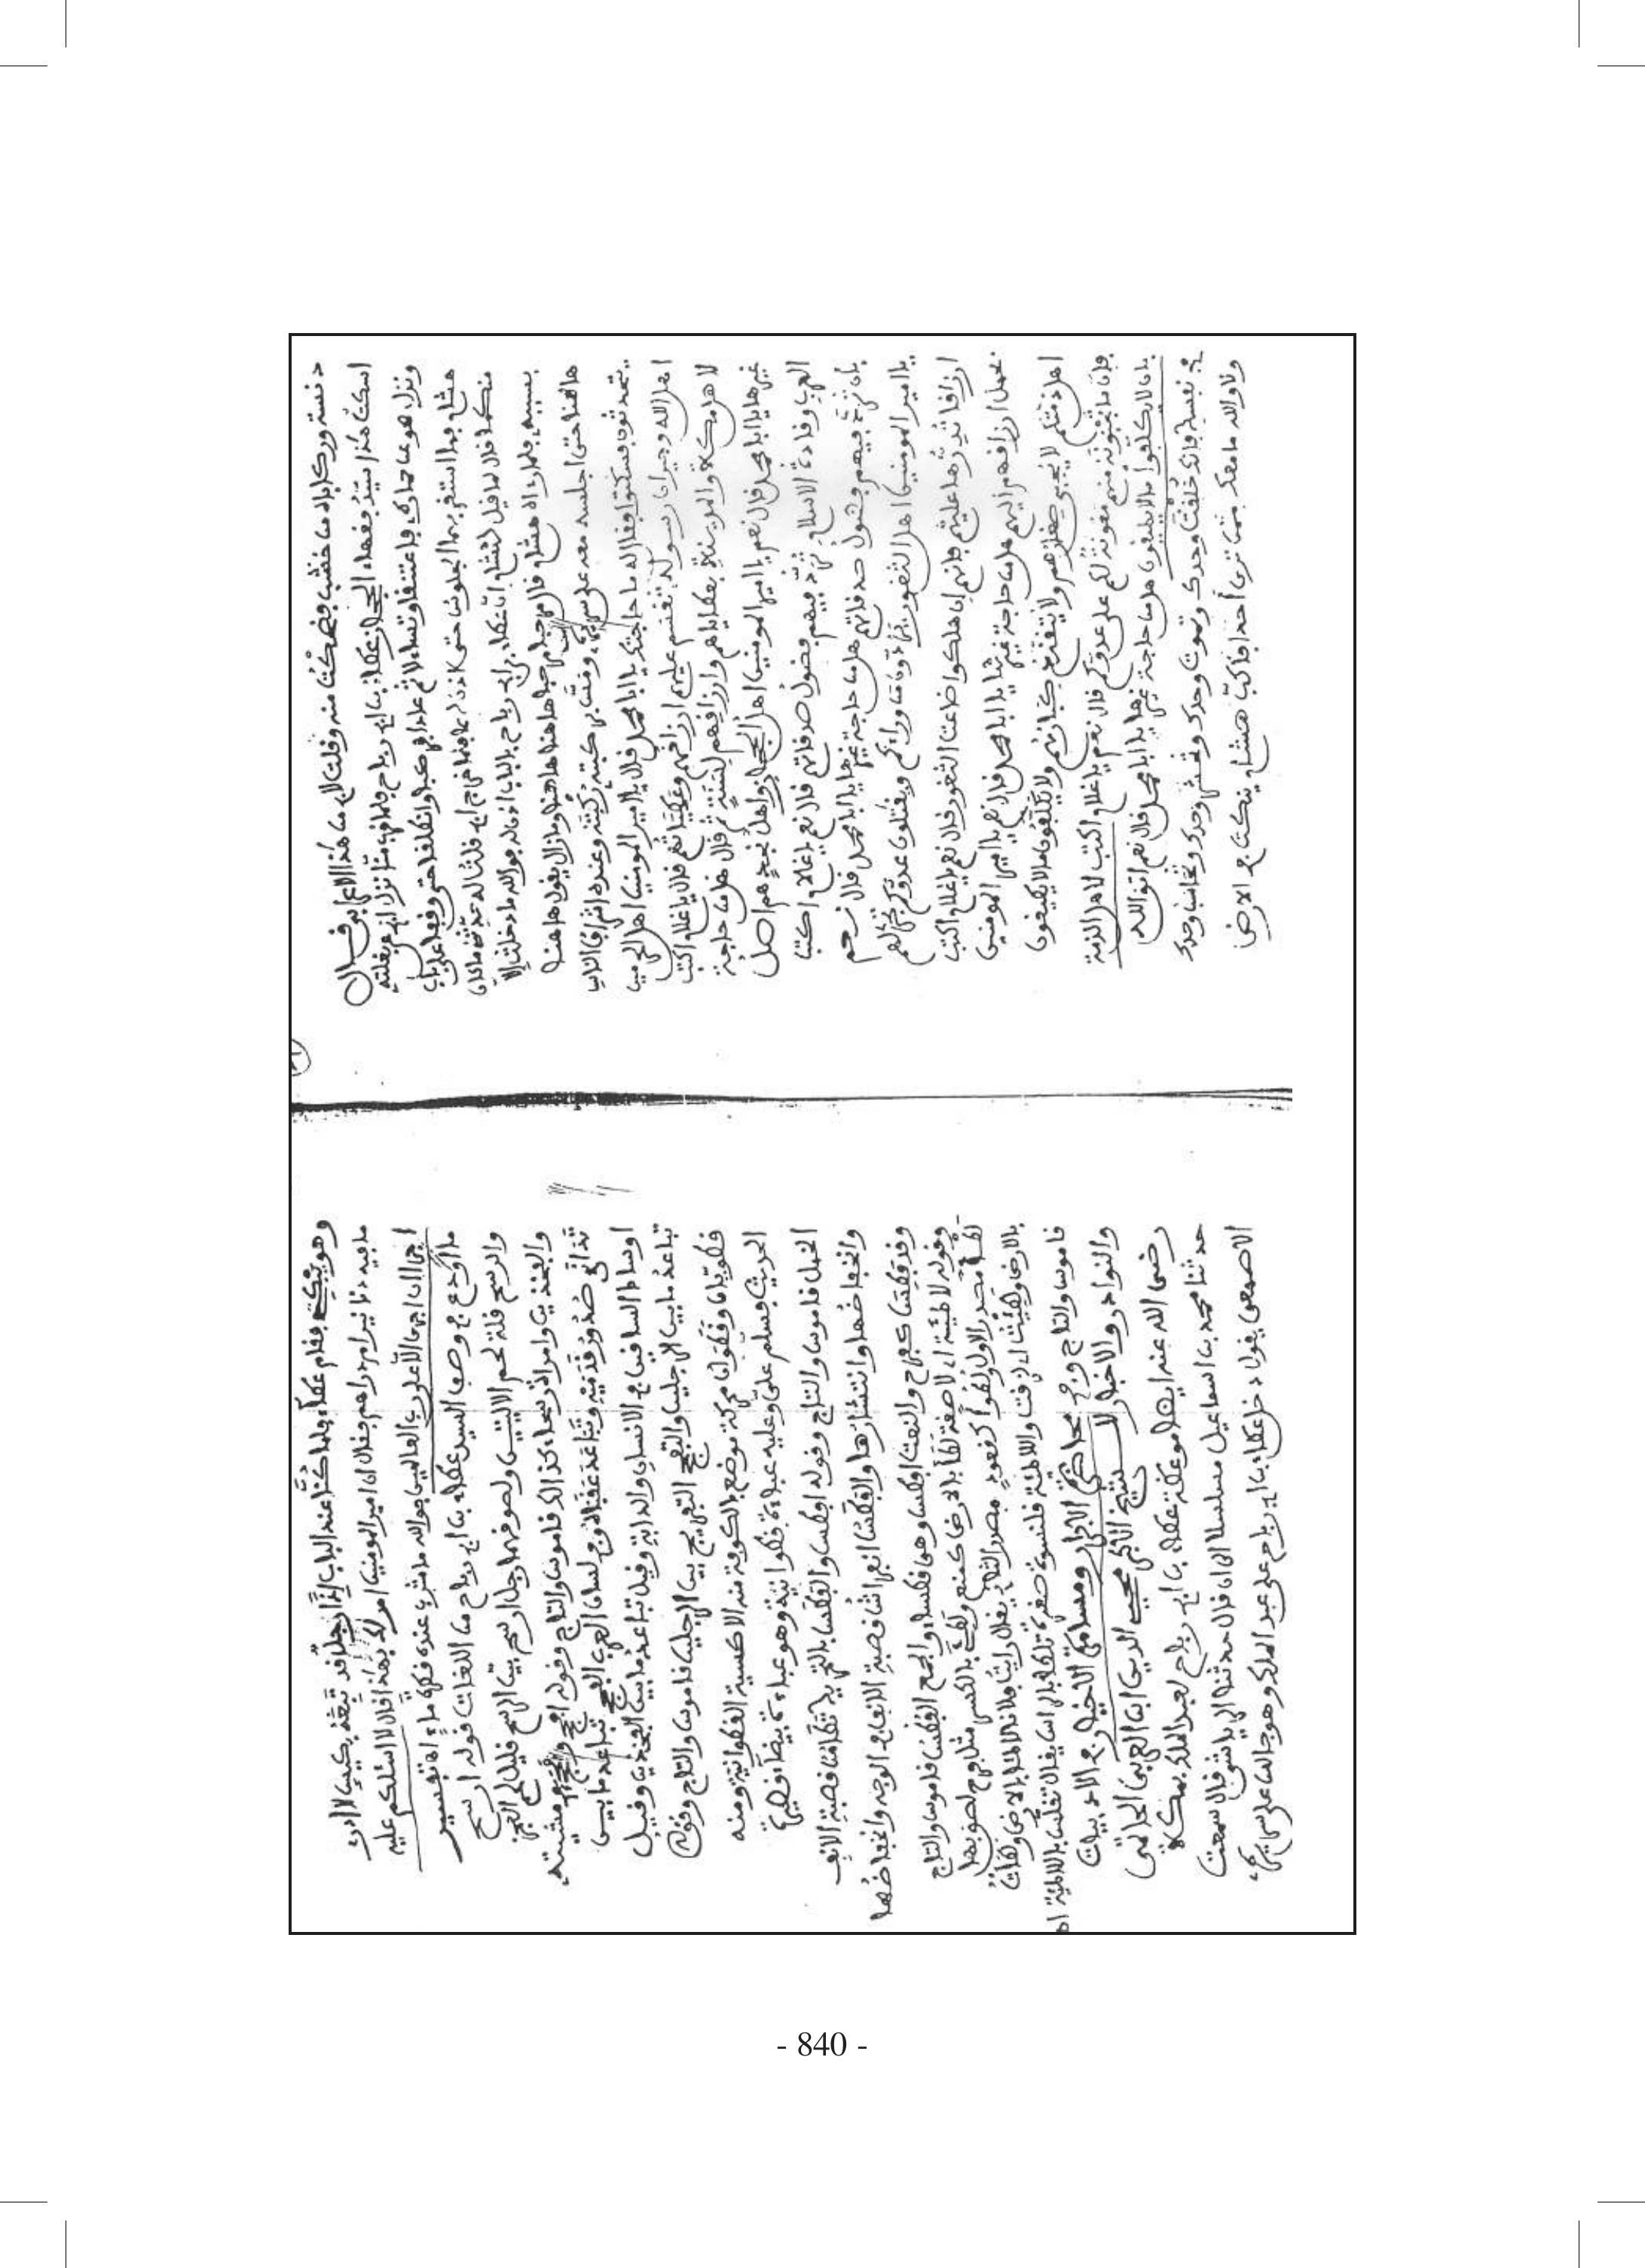 دنسة وركاباه من خشب فضحكت منه وقلت لابي من هذا الاعرابي فقال
اسكت هذا سيد فقهاء الحجاز عطاء بن ابي رباح فلما قرب منا نزل ابي عن بغلته
ونزل هو عن حماره فاعتنقا وتساءلا ثم عادا فركبا وانطلقا حتى وقفا على باب
هشام فما استقر بهما الجلوس حتى اذن لهما فلما خرج ابي قلت له حدثني ما كان
منكما قال لما قيل لهشام ان عطاء بن ابي رباح بالباب اذن له فوالله ما دخلت الا
بسببه فلما رءاه هشام قال مرحبا مرحبا هاهنا هاهنا ومازال يقول هاهنا
هاهنا حتى اجلسه معه على سريره ومس بركبته ركبته وعنده اشراف الناس
يتحدثون فسكتوا فقال له ما حاجتك يا ابا محمد قال يا امير المومنين اهل الحرمين
اهل الله وجيران رسوله تقسم عليهم ارزاقهم وعطياتهم قال يا غلام اكتب
لاهل مكة والمدينة بعطاياهم وارزاقهم لسنة ثم قال هل من حاجة
غيرها يا ابا محمد قال نعم يا امير المومنين اهل الحجاز واهل نجد هم اصل
العرب وقادة الاسلام ترد فيهم فضول صدقاتهم قال نعم يا غلام اكتب
بان ترد فيهم فضول صدقاتهم هل من حاجة غيرها يا ابا محمد قال نعم
يا امير المومنين اهل الثغور يرمون من ورائكم ويقتلون عدوكم تجري لهم
ارزاقا تدرها عليهم فانهم ان هلكوا ضاعت الثغور قال نعم يا غلام اكتب
بحمل ارزاقهم اليهم هل من حاجة غيرها يا ابا محمد قال نعم يا امير المومنين
اهل ذمتكم لا يجبى صغارهم ولا يتعتع كبارهم ولا يكلفون ما لا يطيقون
فان ما تجبونه منهم معونة لكم على عدوكم قال نعم يا غلام اكتب لاهل الذمة
بان لا يكلفوا ما لا يطيقون هل من حاجة غيرها يا ابا محمد قال نعم اتق الله
في نفسك فانك خلقت وحدك وتموت وحدك وتحشر وحدك وتحاسب وحدك
ولا والله ما معك ممن ترى احد فاكب هشام ينكت في الارض
وهو يبكي فقام عطاء فلما كنا عند الباب اذا رجل قد تبعه بكيس لا ادري
ما فيه دنانير ام دراهم فقال ان امير المومنين امر لك بهذا قال لا اسئلكم عليه
اجرا ان اجري الا على رب العالمين فوالله ما شرب عنده قطرة ماء اه تفسير
ما اودع في وصف السيد عطاء بن ابي رباح من اللغات قوله ارسح
والرسح قلة لحم الاليتين ولصوقهما رجل ارسح بين الرسح قليل لحم العجز
والفخذين وامراة رسحاء كذا في القاموس والتاج وقوله افحج فحج في مشيته
تدانى صدور قدميه وتباعد عقباه وفي لسان العرب الفحج تباعد ما بين
اوساط الساقين في الانسان والدابة وقيل تباعد ما بين الفخذين وقيل
تباعد ما بين الرجلين والتفحج التفريج بين الرجلين قاموس والتاج وقوله
قطوانية وقطوان محركة موضع بالكوفة منه الاكسية القطوانية ومنه
الحديث فسلم علي وعليه عباءة قطوانية وهو عباءة بيضاء قصيرة
الخمل قاموس والتاج وقوله افطس والفطس بالتحريك تطامن قصبة الانف
وانخفاضها وانتشارها والفطس انفراش قصبة الانف في الوجه وانخفاضها
وقد فطس كفرح والنعت افطس وهي فطساء والجمع الفطس قاموس والتاج
وقوله لاطئة اي لاصقة لطا بالارض كمنع ولطئ بالكسر مثل فرح لصق بها
لطا مصدر الاول ولطوءا كقعود مصدر الثاني يقال رايت فلانا لاطئا بالارض ولطات
بالارض ولطئت اي لزقت واللاطئة قلنسوة صغيرة تلطا بالراس يقال تقلس باللاطئة اه
قاموس والتاج وفي محاضرة الابرار ومسامرة الاخيار في الادبيات
والنوادر والاخبار للشيخ الاكبر محيي الدين ابن العربي الحاتمي
رضي الله عنه ايضا موعظة عطاء بن ابي رباح لعبد الملك بمكة
حدثنا محمد بن اسماعيل مسلسلا الى ان قال حدثنا الرياشي قال سمعت
الاصمعي يقول دخل عطاء بن ابي رباح على عبد الملك وهو جالس على سريره
- 840 -